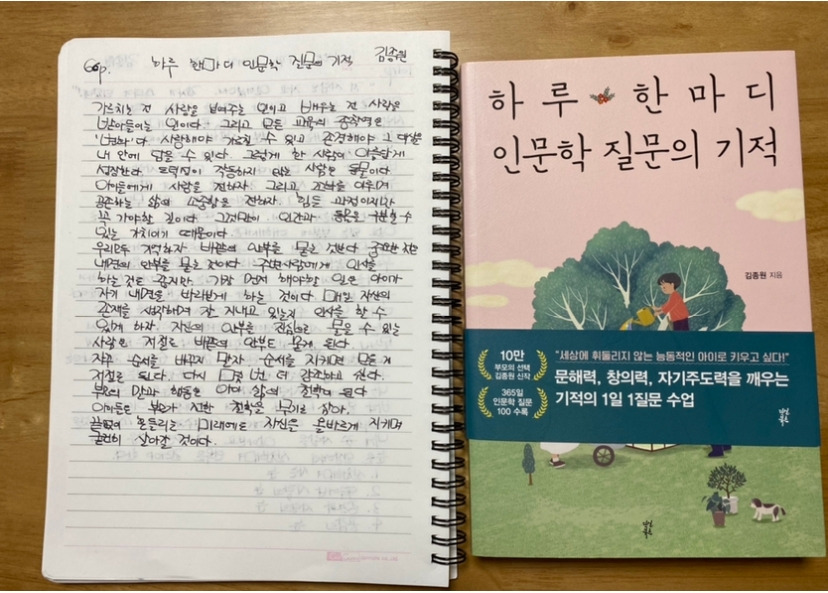 66p. 하루 한마디 인문학 질문의 기적 김종원
가르치는 건 사랑을 보여주는 일이고 배우는 건 사랑을
받아들이는 일이다. 그리고 모든 교육의 종착역은
'변화'다 사랑해야 가르칠 수 있고 존경해야 그 대상을
내 안에 담을 수 있다. 그렇게 한 사람이 아름답게
성장한다. 도덕성이 작동하지 않는 사람은 동물이다.
아이들에게 사랑을 전하자 그리고 조화를 이루며
공존하는 삶의 소중함을 전하자. 힘든 과정이지만
꼭 가야할 길이다 그것만이 인간과 동물을 구분할 수
있는 가치이기 때문이다.
우리모두 기억하자 바깥의 안부를 묻는 것보다 중요한 것은
내면의 안부를 묻는 것이다 주변사람에게 인사를
하는 것도 좋지만 가장 먼저 해야할 일은 아이가
자기 내면을 바라보게 하는 것이다 매일 자신의
존재를 생각하며 잘 지내고 있는지 인사를 할 수
있게 하자 자신의 안부를 진심으로 물을 수 있는
사람은 저절로 바깥의 안부도 묻게 된다.
자주 순서를 바꾸지 말자 순서를 지키면 모든 게
저절로 된다. 다시 한번 더 강조하고 싶다.
부모의 말과 행동은 아이 삶의 철학이 된다
아이들은 부모가 전한 철학을 느끼고 살아.
끝없이 흔들리는 미래에도 자신을 올바르게 지키며
굳건히 살아갈 것이다.
하루 한마디
인문학 질문의 기적
김종원 지음
10만
부모의 선택
김종원 신작
365일
인문학 질문
100 수록
"세상에 휘둘리지 않는 능동적인 아이로 키우고 싶다!"
문해력, 창의력, 자기주도력을 깨우는
기적의 1일 1질문 수업